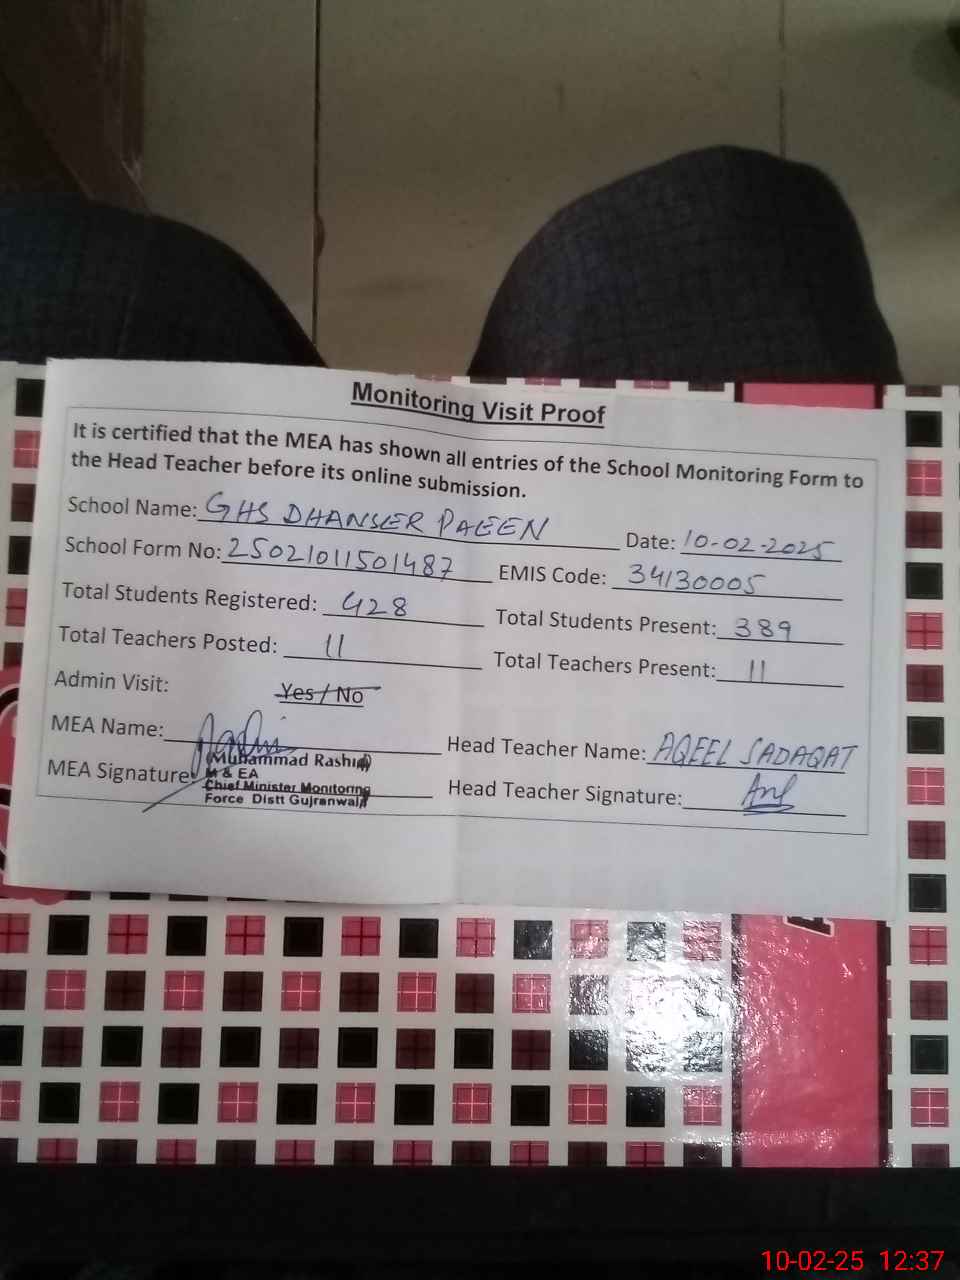 Monitoring Visit Proof
It is certified that the MEA has shown all entries of the School Monitoring Form to
the Head Teacher before its online submission.
School Name: GHS DHANSER PAEEN Date: 10-02-2025
School Form No: 25021011501487 EMIS Code: 34130005
Total Students Registered: 428 Total Students Present: 389
Total Teachers Posted: 11 Total Teachers Present: 11
Admin Visit: Yes / No
MEA Name: Head Teacher Name: AQEEL SADAQAT
(Muhammad Rashid)
MEA Signature: Head Teacher Signature:
M & EA
Chief Minister Monitoring
Force Distt Gujranwala
10-02-25 12:37